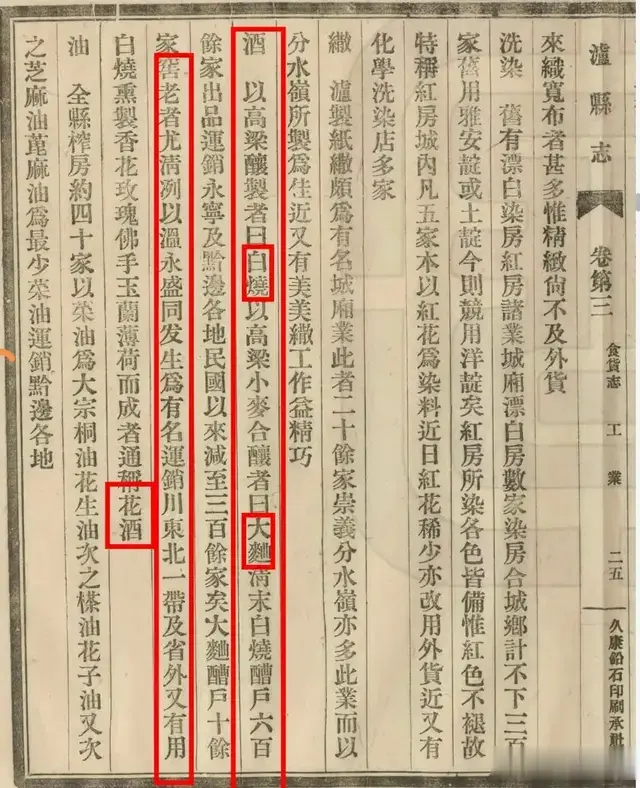 瀘縣志 卷第三 食貨志 工業 二五
久康鉛石印刷承
來織寬布者甚多惟精緻尙不及外貨
洗染 舊有漂白染房紅房諸業城廂漂白房數家染房合城鄉計不下三百
家舊用雅安靛或土靛今則競用洋靛矣紅房所染各色皆備惟紅色不褪故
特稱紅房城內凡五家本以紅花爲染料近日紅花稀少亦改用外貨近又有
化學洗染店多家
繖 瀘製紙繖頗爲有名城廂業此者二十餘家崇義分水嶺亦多此業而以
分水嶺所製爲佳近又有美美繖工作益精巧
酒 以高梁釀製者曰白燒以高梁小麥合釀者曰大麯淸末白燒醩戶六百
餘家出品運銷永寧及黔邊各地民國以來減至三百餘家矣大麯醩戶十餘
家窖老者尤淸冽以溫永盛同发生爲有名運銷川東北一帶及省外又有用
白燒熏製香花玫瑰佛手玉蘭薄荷而成者通稱花酒
油 全縣榨房約四十家以菜油爲大宗桐油花生油次之榛油花子油又次
之芝麻油萞麻油爲最少菜油運銷黔邊各地